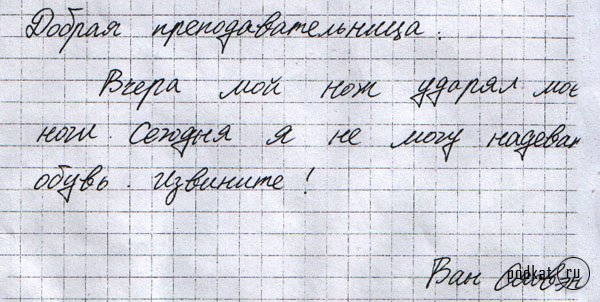 Добрая преподавательница.
Вчера мой нож ударял мое
ноги. Сегодня я не могу надеват
обувь. Извините!
Ван
podkat.ru